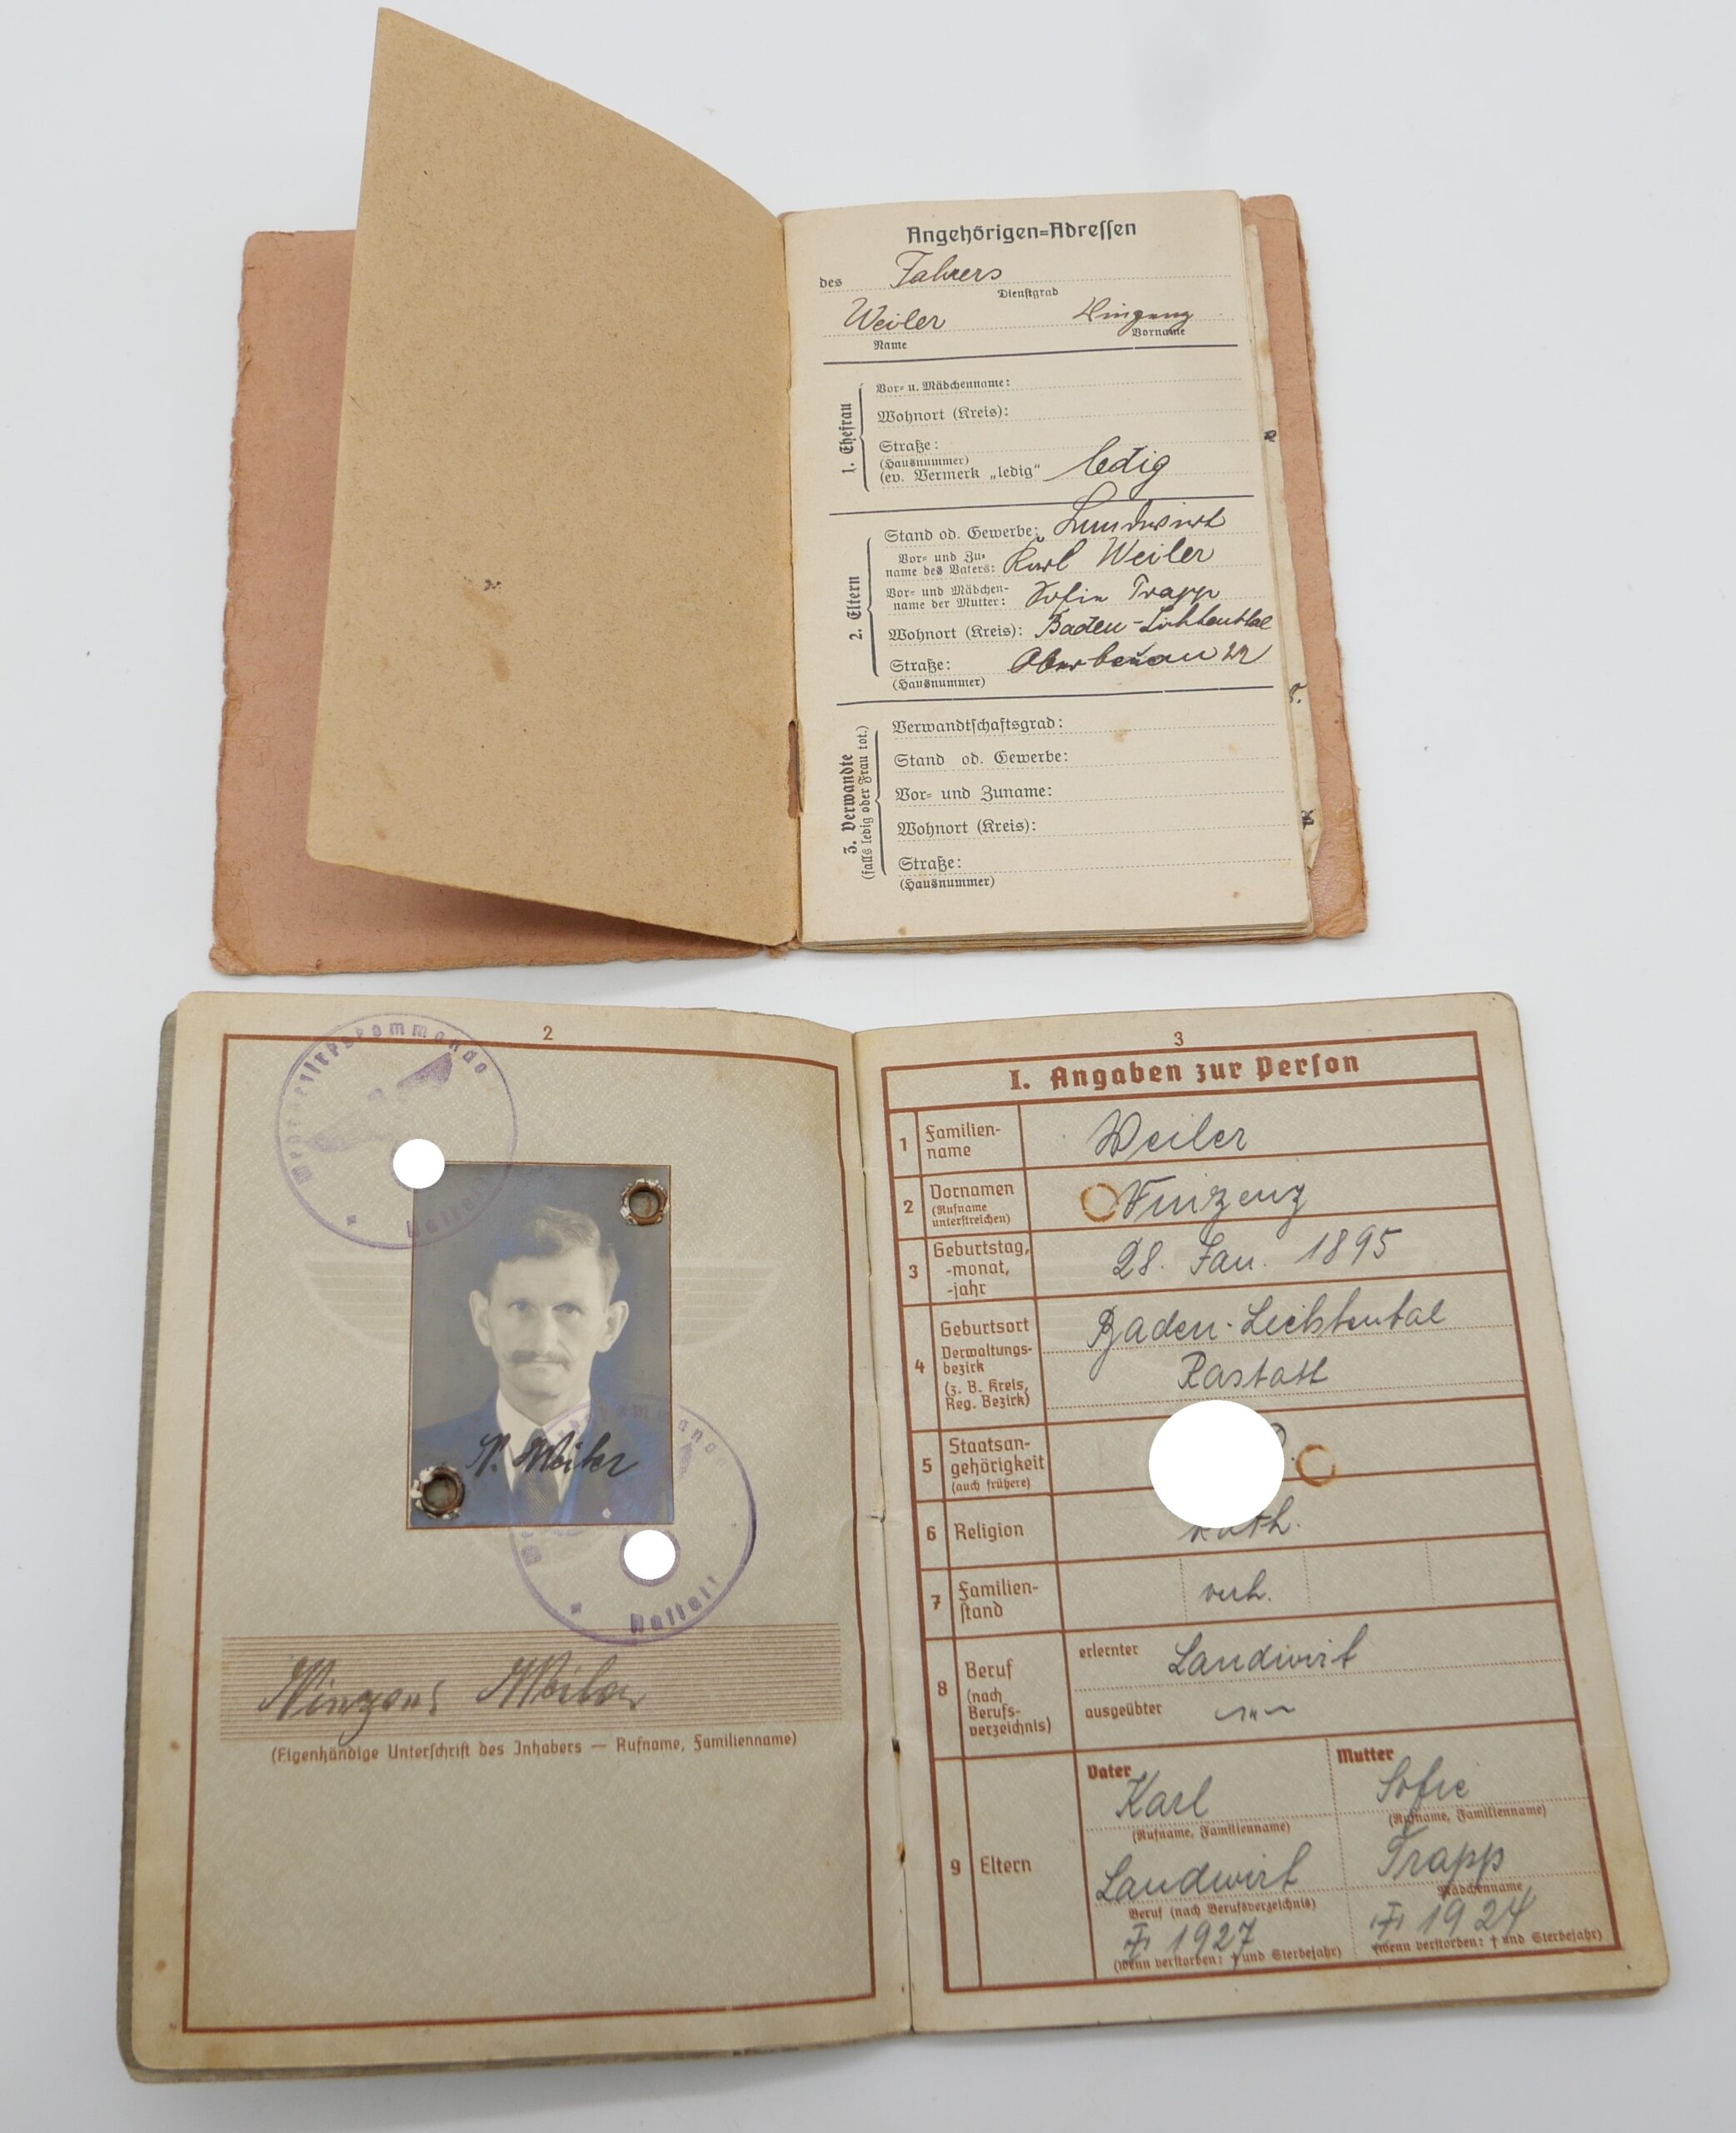 Angehörigen=Adressen
des Fahrers
Dienstgrad
Weiler Vinzenz
Name Vorname
1. Ehefrau
Vor= u. Mädchenname:
Wohnort (Kreis):
Straße:
(Hausnummer)
(ev. Vermerk „ledig“ ledig
2. Eltern
Stand od. Gewerbe: Landwirt
Vor= und Zu=
name des Vaters: Karl Weiler
Vor= und Mädchen=
name der Mutter: Sofie Trapp
Wohnort (Kreis): Baden-Lichtenthal
Straße:
(Hausnummer)
3. Verwandte
(falls ledig oder Frau tot.)
Verwandtschaftsgrad:
Stand od. Gewerbe:
Vor= und Zuname:
Wohnort (Kreis):
Straße:
(Hausnummer)
2
V. Weiler
Vinzenz Weiler
(Eigenhändige Unterschrift des Inhabers — Rufname, Familienname)
3
I. Angaben zur Person
1 Familien-
name Weiler
2 Vornamen
(Rufname
unterstreichen) Vinzenz
3 Geburtstag,
-monat,
-jahr 28. Jan. 1895
4 Geburtsort
Verwaltungs-
bezirk
(z. B. Kreis,
Reg. Bezirk)
Baden-Lichtental
Rastatt
5 Staatsan-
gehörigkeit
(auch frühere)
6 Religion kath.
7 Familien-
stand verh.
8 Beruf
(nach
Berufs-
verzeichnis)
erlernter Landwirt
ausgeübter –„–
9 Eltern
Vater
Karl
(Rufname, Familienname)
Landwirt
Beruf (nach Berufsverzeichnis)
† 1927
(wenn verstorben: † und Sterbejahr)
Mutter
Sofie
(Rufname, Familienname)
Trapp
Mädchenname
† 1924
(wenn verstorben: † und Sterbejahr)